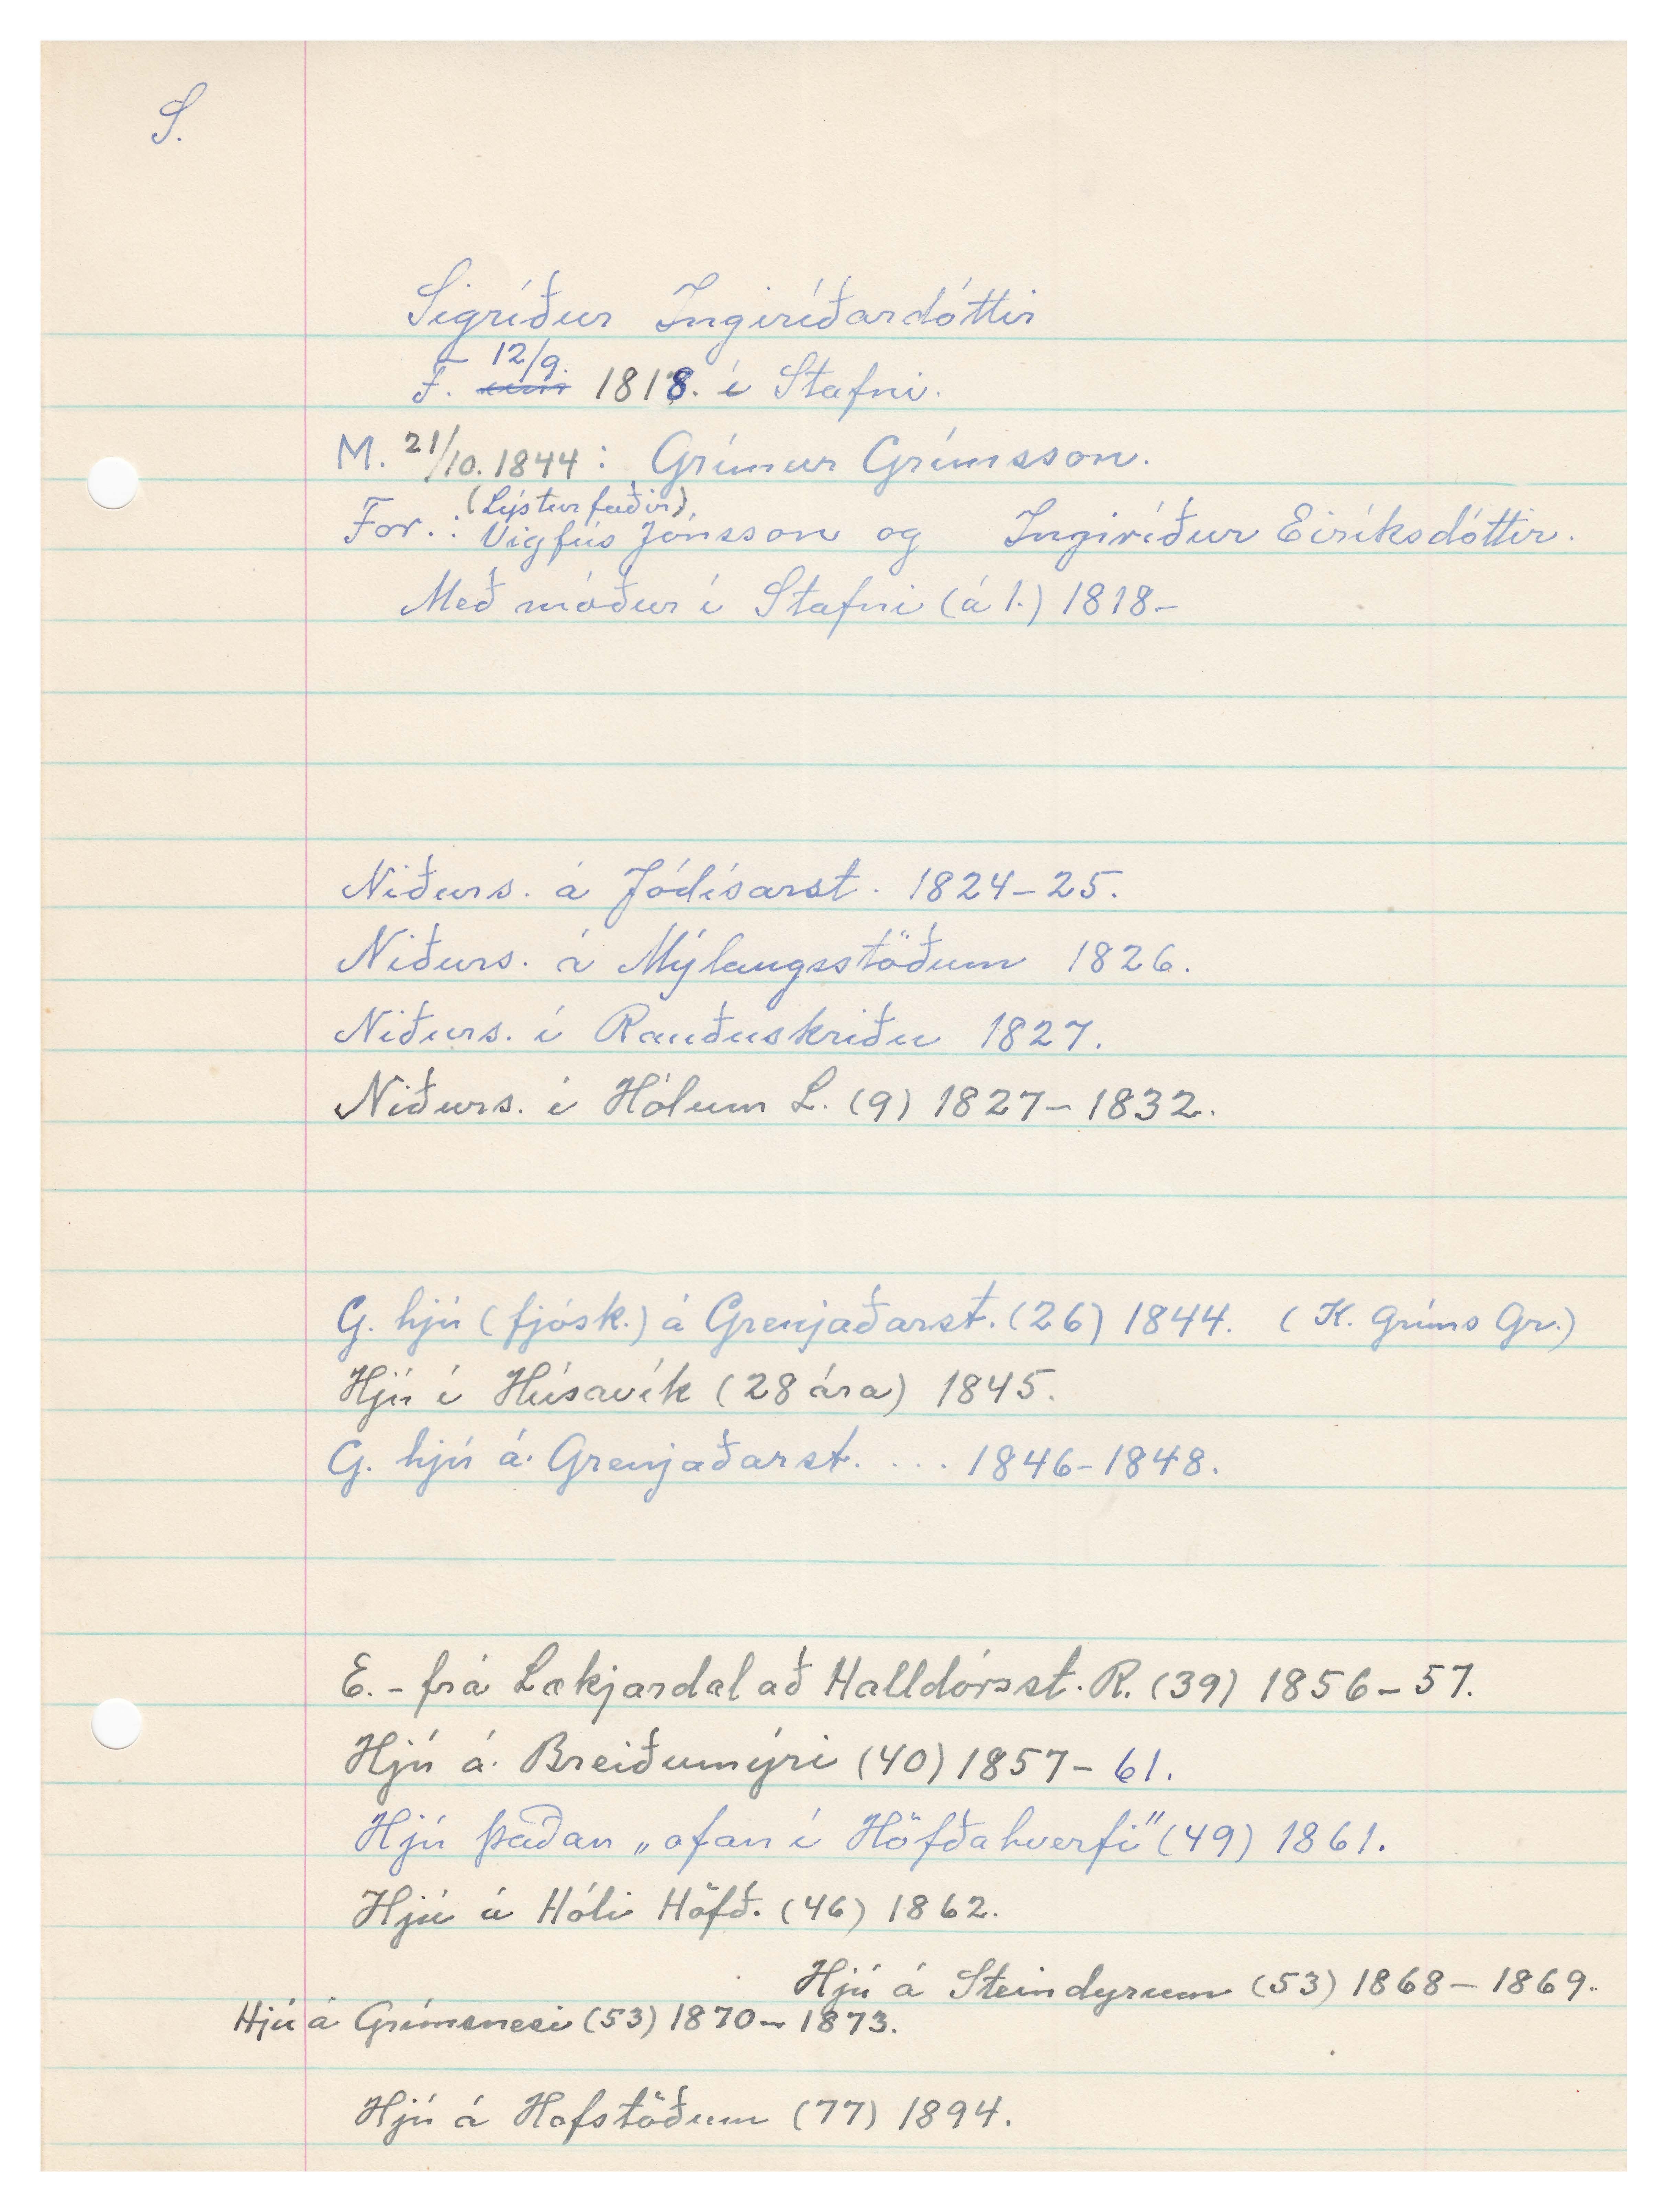 S.
Sigríður Ingiríðardóttir
F. 12/9. um 1818. í Stafni.
M. 21/10. 1844: Grímur Grímsson.
(Lýstur faðir)
For.: Vigfús Jónsson og Ingiríður Eiríksdóttir.
Með móður í Stafni (á 1.) 1818-
Niðurs. á Jódísarst. 1824-25.
Niðurs. á Mýlaugsstöðum 1826.
Niðurs. í Rauðuskriðu 1827.
Niðurs. í Hólum L. (9) 1827-1832.
G. hjú (fjósk.) á Grenjaðarst. (26) 1844. (K. Gríms Gr.)
Hjú í Húsavík (28 ára) 1845.
G. hjú á Grenjaðarst. ... 1846-1848.
E. - frá Lækjardal að Halldórsst. R. (39) 1856-57.
Hjú á Breiðumýri (40) 1857-61.
Hjú þaðan „ofan í Höfðahverfi" (49) 1861.
Hjú á Hóli Höfð. (46) 1862.
Hjú á Steindyrum (53) 1868-1869.
Hjú á Grímsnesi (53) 1870-1873.
Hjú á Hofstöðum (77) 1894.